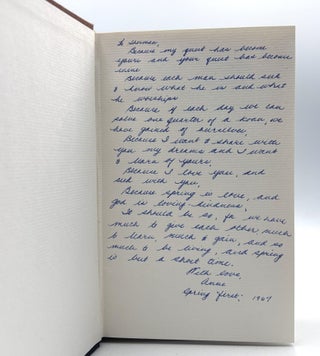 To Herman,
Because my quest has become
yours and your quest has become
mine
Because each man should seek
to know what he is and what
he worships
Because if each day we can
solve one quarter of a koan, we
have gained of ourselves,
Because I want to share with
you my dreams and I want
to learn of yours,
Because I love you, and
seek with you,
Because spring is love, and
god is loving-kindness,
It should be so, for we have
much to give each other, much
to learn, much to gain, and so
much to be living, and spring
is but a short time.
With love,
Anne
Spring first, 1967